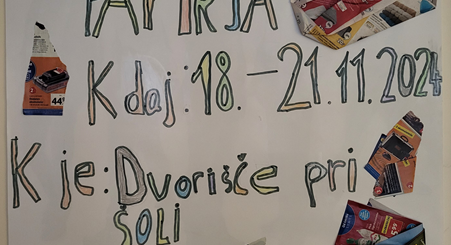 PAPIRJA
Kdaj: 18. – 21.11.2024
Kje: Dvorišče pri
ŠOLI
44⁹